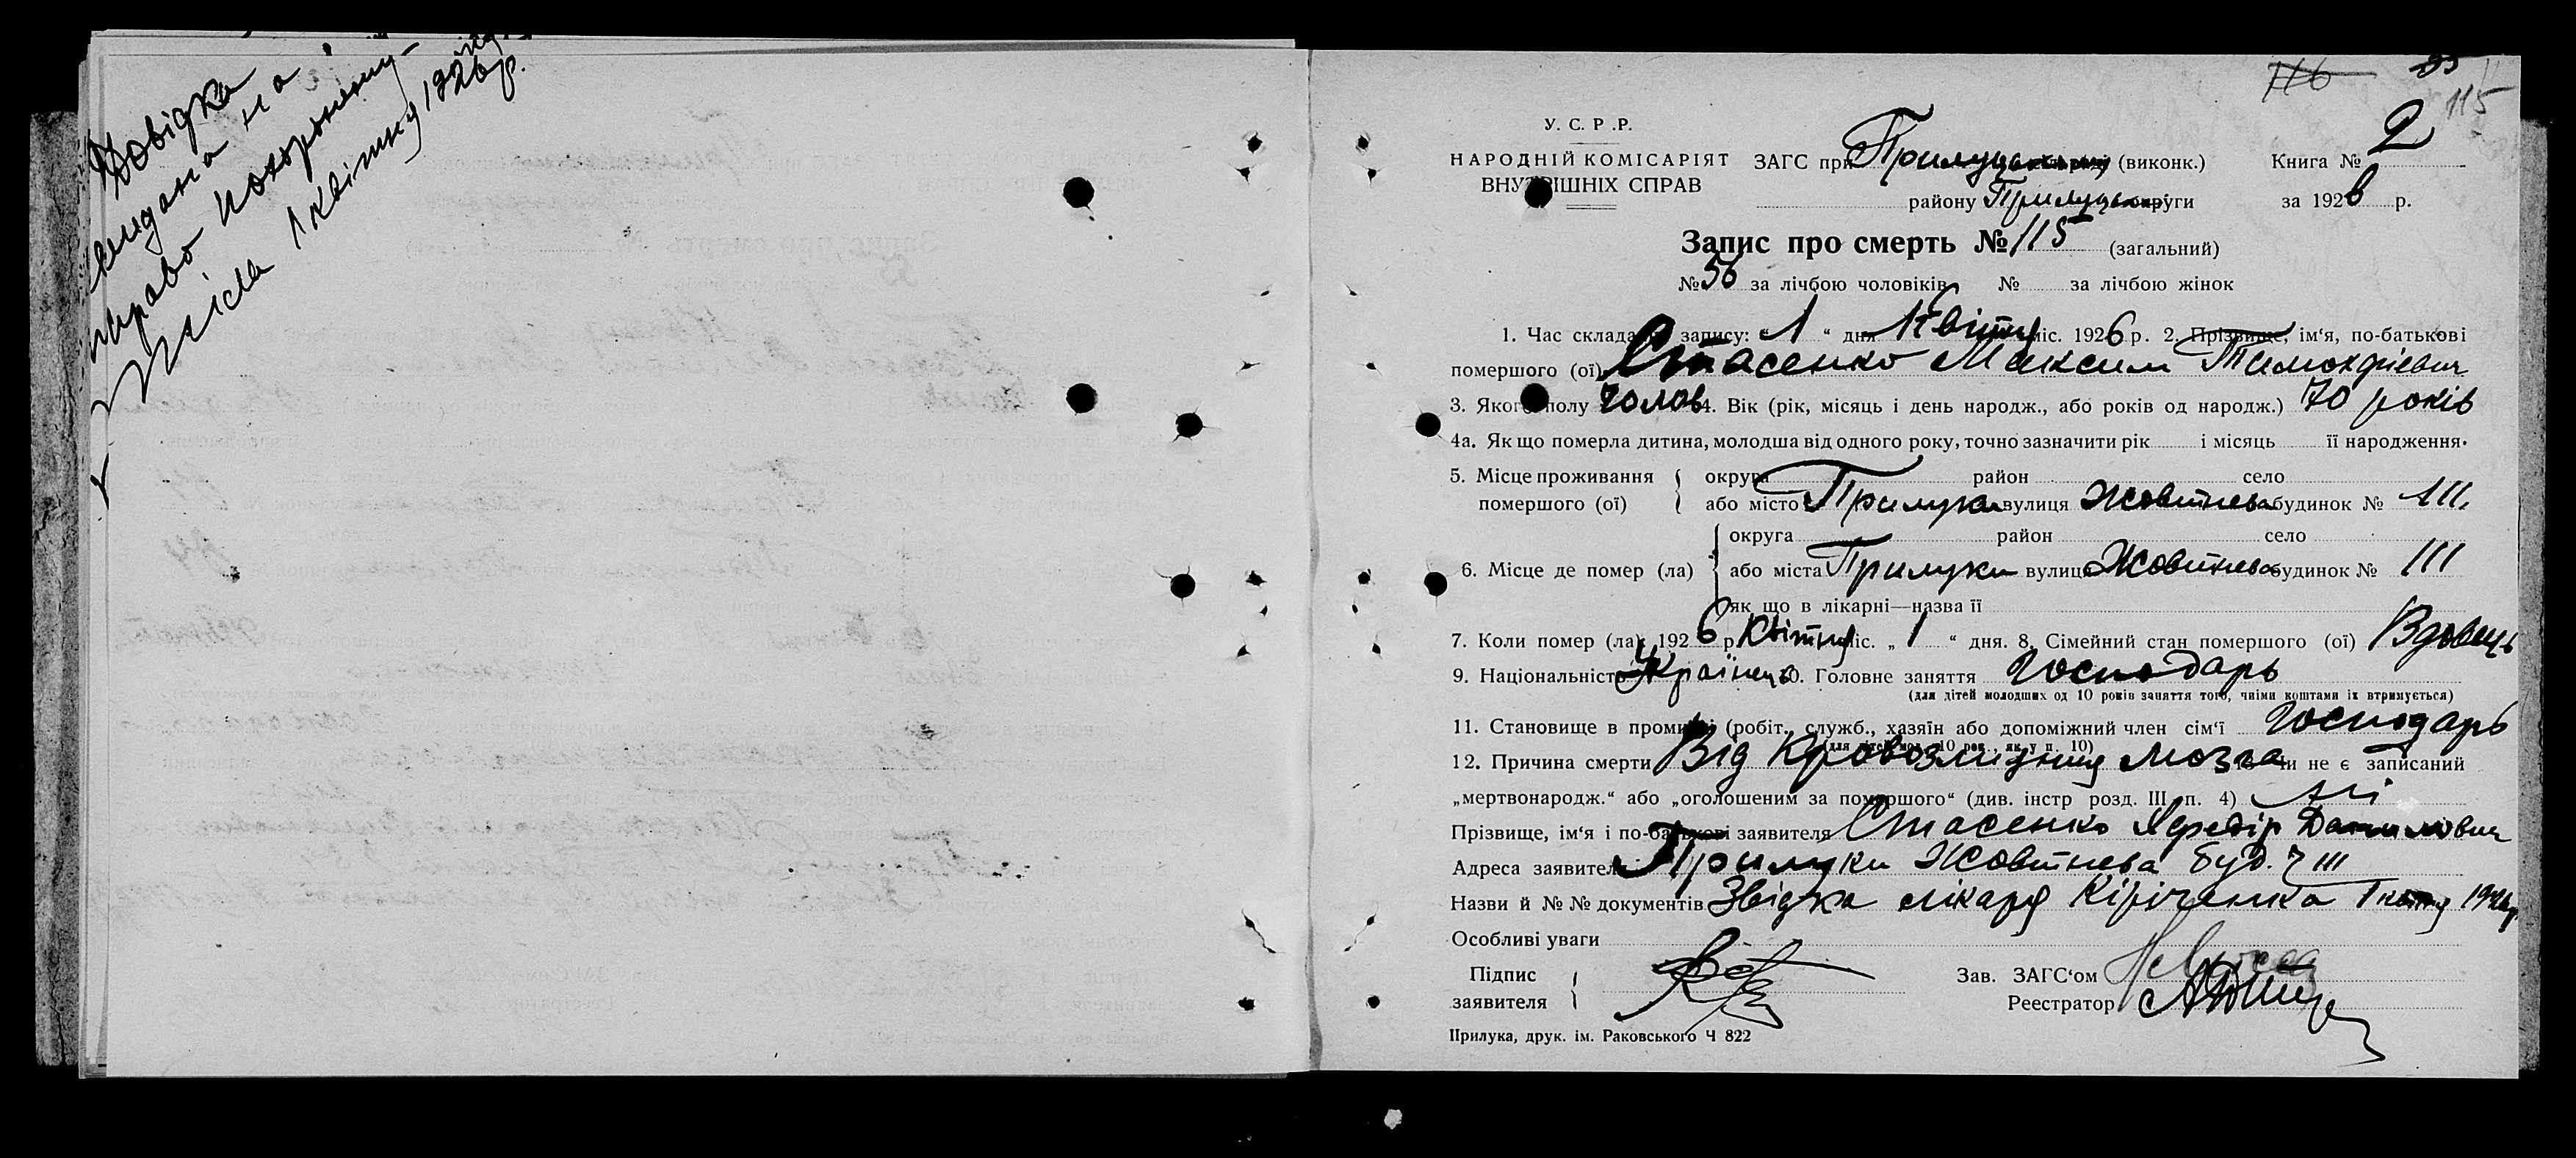 Довідка
видана на
право похорону
після 1 квітня 1926 р.
116
115
У. С. Р. Р.
НАРОДНІЙ КОМІСАРІЯТ
ВНУТРІШНІХ СПРАВ
ЗАГС при Прилуцьк (виконк.)
району Прилуцьк округи
Книга № 2
за 1926 р.
Запис про смерть № 115 (загальний)
№ 56 за лічбою чоловіків № за лічбою жінок
1. Час складання запису: „ 1 “ дня Квітня міс. 1926 р. 2. Прізвище, ім‘я, по-батькові
помершого (ої) Стасенко Максим
3. Якого полу Чолов 4. Вік (рік, місяць і день народж., або років од народж.) 70 років
4а. Як що померла дитина, молодша від одного року, точно зазначити рік і місяць її народження.
5. Місце проживання помершого (ої) { округа район село
або місто Прилука вулиця Жовтнева будинок № 111.
6. Місце де помер (ла) { округа район село
або міста Прилуки вулиця Жовтнева будинок № 111
як що в лікарні—назва її
7. Коли помер (ла) 1926 р. Квітня міс. „ 1 “ дня. 8. Сімейний стан помершого (ої) Вдовець
9. Національність Українець 10. Головне заняття Господарь
(для дітей молодших од 10 років заняття того, чиїми коштами їх втримується)
11. Становище в промислі (робіт., служб., хазяїн або допоміжний член сім‘ї Господарь
(для дітей мол. 10 рок., як у п. 10)
12. Причина смерти Від Кровозлиянія мозга чи не є записаний
„мертвонародж.“ або „оголошеним за помершого“ (див. інстр розд. III п. 4) Ні
Прізвище, ім‘я і по-батькові заявителя Стасенко Данилович
Адреса заявителя Прилуки Жовтнева буд. Ч 111
Назви й №№ документів Звідка лікаря Кіріченка 1 квітня 1926 р.
Особливі уваги
Підпис
заявителя
Зав. ЗАГС‘ом
Реестратор
Прилука, друк. ім. Раковського Ч 822